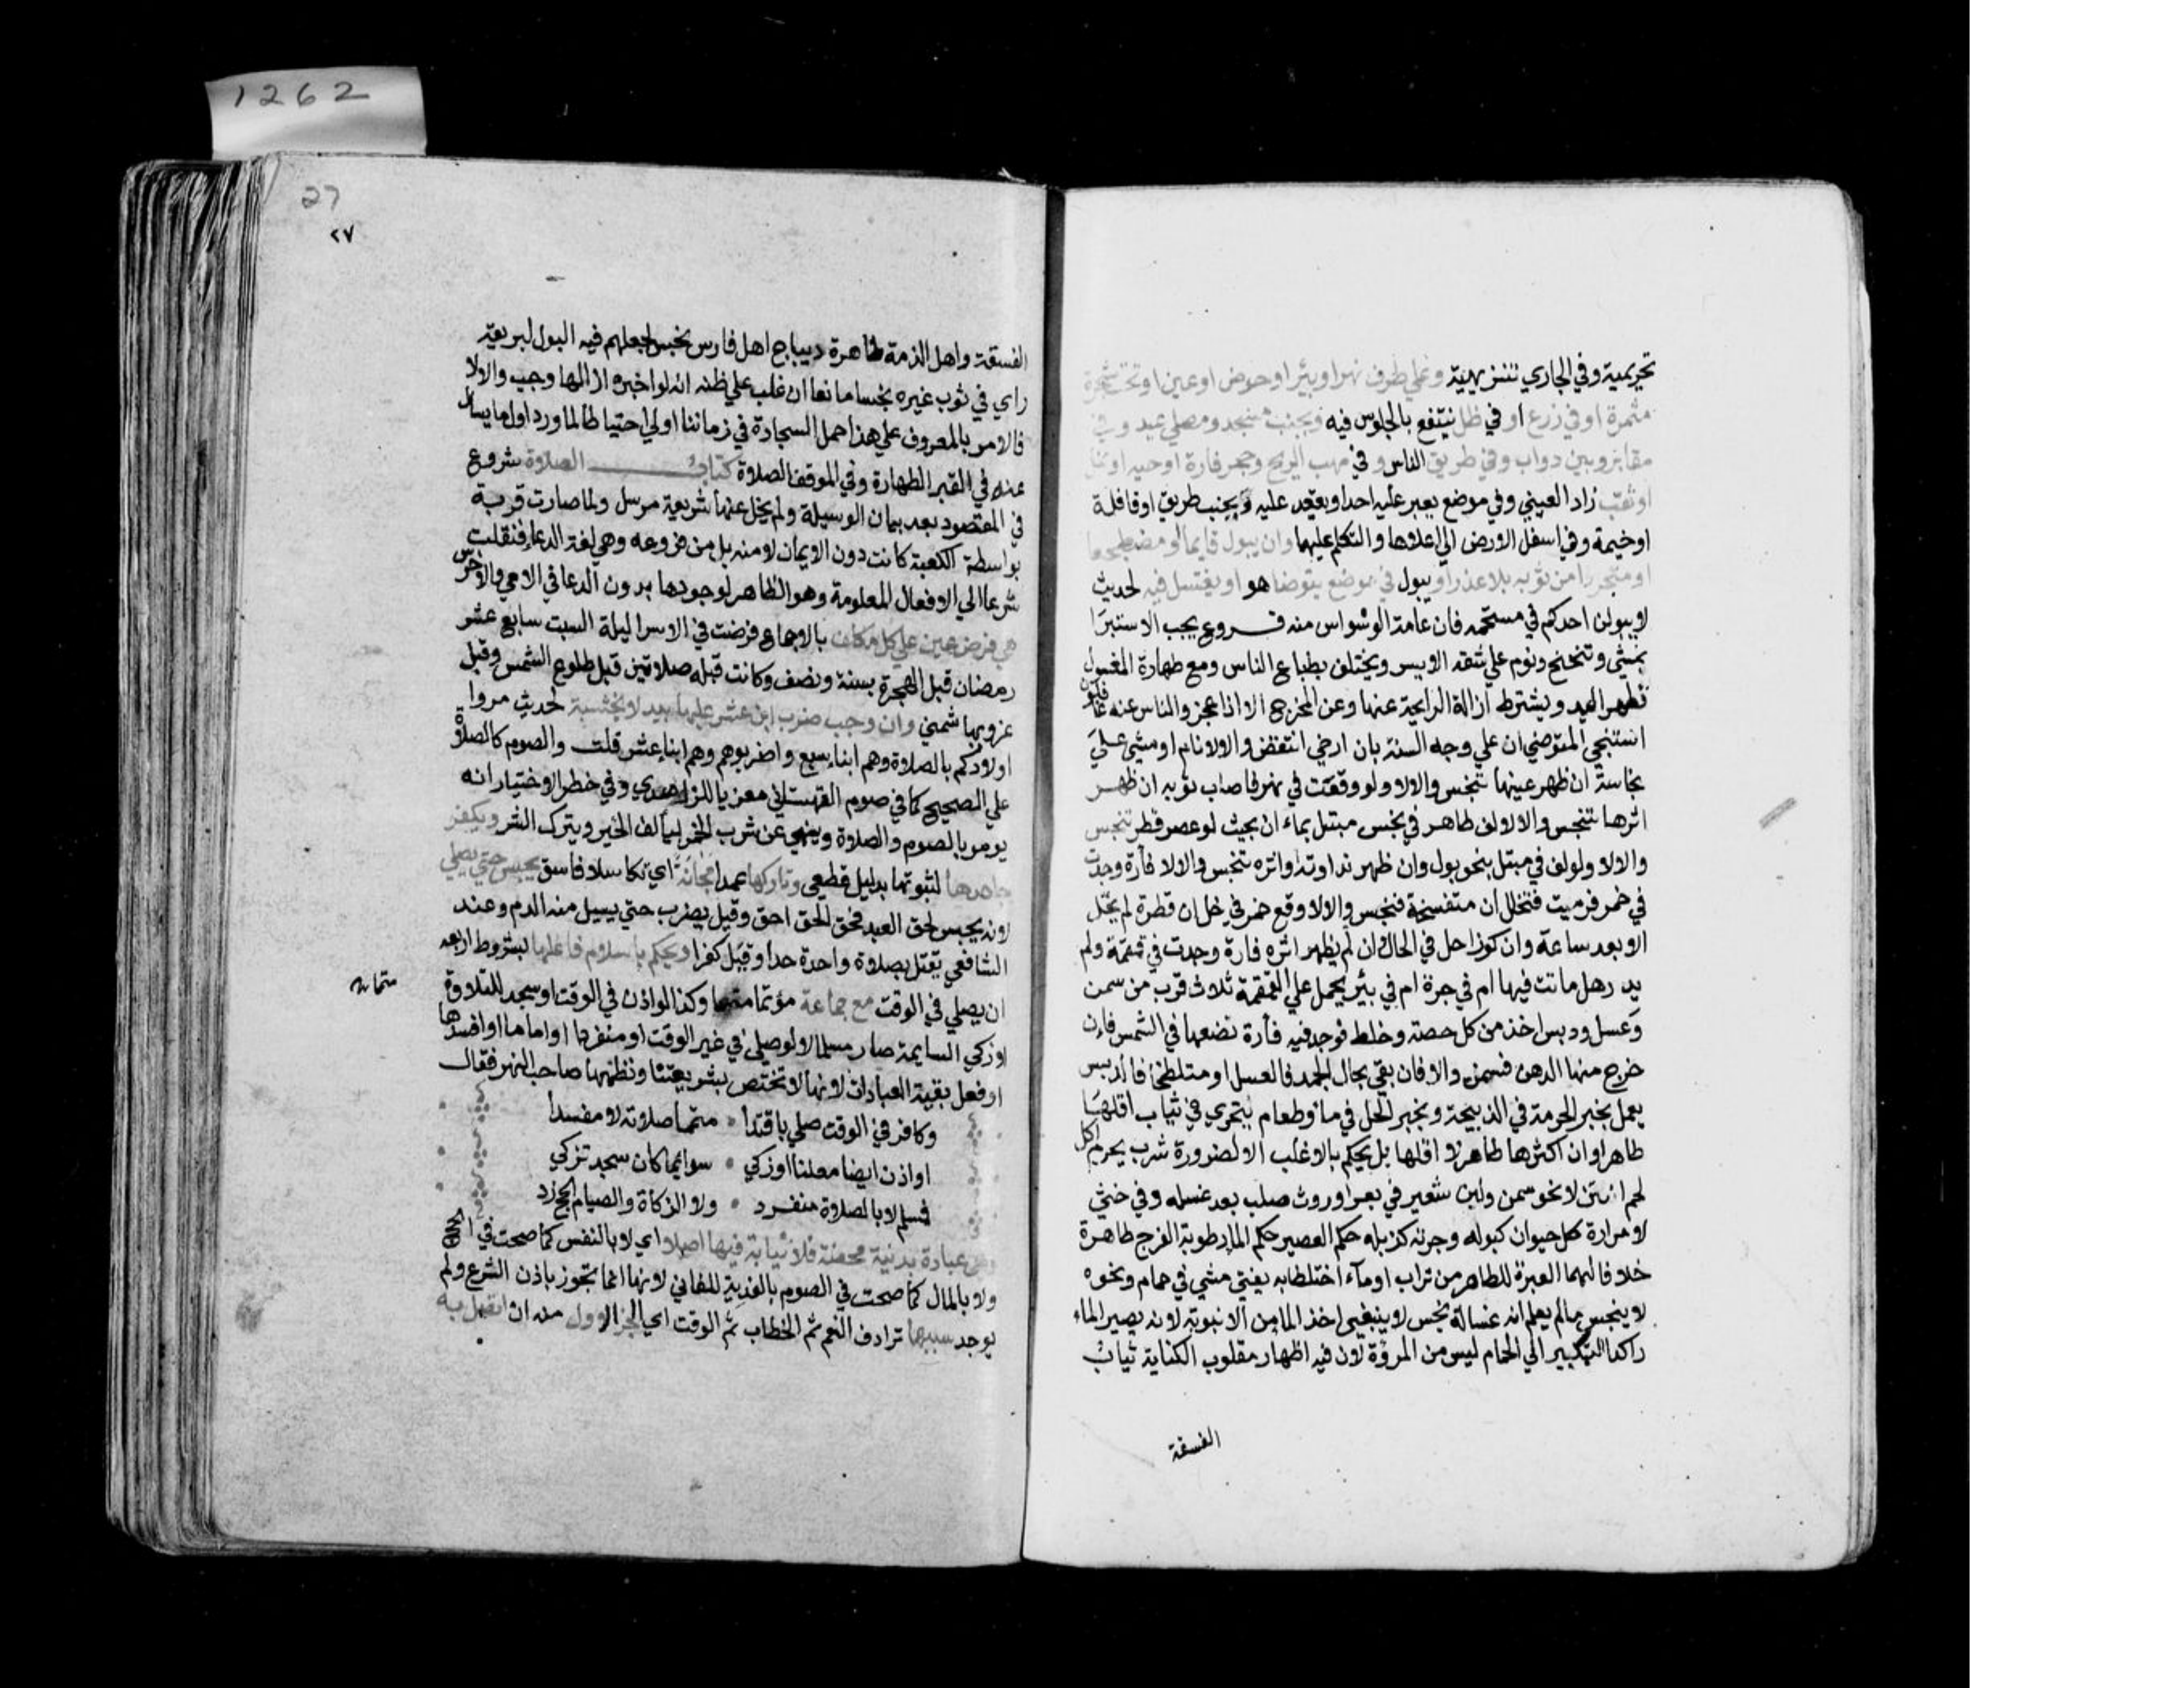 تحريمية وفي الجاري تنزيهية وعلى طرف نهر او بئر او حوض او عين او تحت شجرة
مثمرة او في زرع او في ظل ينتفع بالجلوس فيه وبجنب مسجد ومصلى عيد وفي
مقابر وبين دواب وفي طريق الناس وفي مهب الريح وجحر فارة او حية او نمل
او ثقب زاد العيني وفي موضع يعبر عليه احد او يقعد عليه وبجنب طريق او قافلة
او خيمة وفي اسفل الارض الي اعلاها والتكلم عليهما وان يبول قايما او مضطجعا
او متجردا من ثوبه بلا عذر او يبول في موضع يتوضا هو او يغتسل فيه لحديث
لا يبولن احدكم في مستحمه فان عامة الوسواس منه فروع يجب الاستبرا
بمشي وتنحنح ونوم علي شقه الايسر ويختلف بطباع الناس ومع طهارة المغسول
تطهر اليد ويشترط ازالة الرايحة عنها وعن المخرج الا اذا عجز والناس عنه غافلون
استنجي المتوضي ان علي وجه السنة بان ارخي انتقض والا لا نام او مشي علي
نجاسة ان ظهر عينها تنجس والا لا ولو وقعت في نهر فاصاب ثوبه ان ظهر
اثرها تنجس والا لا لف طاهر في نجس مبتل بماء ان بحيث لو عصر قطر تنجس
والا لا ولو لف في مبتل بنحو بول وان ظهر نداوته او اثره تنجس والا لا فأرة وجدت
في خمر فرميت فتخلل ان متفسخة فنجس والا لا وقع خمر في خل ان قطرة لم يحل
الا بعد ساعة وان كوزا حل في الحال ان لم يظهر اثره فارة وجدت في قمقمة ولم
يدر هل ماتت فيها ام في جرة ام في بئر يحمل علي القمقمة ثلاث قرب من سمن
وعسل ودبس اخذ من كل حصة وخلط فوجد فيه فأرة نضعها في الشمس فان
خرج منها الدهن فسمن والا فان بقي بحال الجمد فالعسل او متلطخا فالدبس
يعمل بخبر الحرمة في الذبيحة وبخبر الحل في ماء وطعام يتحري في ثياب اقلها
طاهر او ان اكثرها طاهر لا اقلها بل يحكم بالاغلب الا لضرورة شرب يحرم اكل
لحم انتن لا نحو سمن ولبن شعير في بعر او روث صلب بعد غسله وفي خثي
لا مرارة كل حيوان كبوله وجرته كزبله حكم العصير حكم الماء رطوبة الفرج طاهرة
خلافا لهما العبرة للطاهر من تراب او ماء اختلطا به يفتي مشي في حمام ونحوه
لا ينجس ما لم يعلم انه غسالة نجس لا ينبغي اخذ الماء من الانبوبة لانه يصير الماء
راكدا التبكير الي الحمام ليس من المروة لان فيه اظهار مقلوب الكناية ثياب
الفسقة
27
٢٧
الفسقة واهل الذمة طاهرة ديباج اهل فارس نجس لجعلهم فيه البول لبريقه
راي في ثوب غيره نجسا مانعا ان غلب علي ظنه انه لو اخبره ازالها وجب والا لا
فالامر بالمعروف علي هذا حمل السجادة في زماننا اولي احتياطا لما ورد اول ما يسال
عنه في القبر الطهارة وفي الموقف الصلاة كتاب الصلاة شروع
في المقصود بعد بيان الوسيلة ولم يخل عنها شريعة مرسل ولما صارت قربة
بواسطة الكعبة كانت دون الايمان لا منه بل من فروعه وهي لغة الدعاء فنقلت
شرعا الي الافعال المعلومة وهو الظاهر لوجودها بدون الدعا في الامي والاخرس
هي فرض عين علي كل مكلف بالاجماع فرضت في الاسرا ليلة السبت سابع عشر
رمضان قبل الهجرة بسنة ونصف وكانت قبله صلاتين قبل طلوع الشمس وقبل
غروبها شمني وان وجب ضرب ابن عشر عليها بيد لا بخشبة لحديث مروا
اولادكم بالصلاة وهم ابناء سبع واضربوهم وهم ابناء عشر قلت والصوم كالصلاة
علي الصحيح كما في صوم القهستاني معزيا للزاهدي وفي حظر الاختيار انه
يومر بالصوم والصلاة وينهي عن شرب الخمر ليألف الخير ويترك الشر ويكفر
جاحدها لثبوتها بدليل قطعي وتاركها عمدا مجانة اي تكاسلا فاسق يحبس حتي يصلي
لانه يحبس لحق العبد فحق الحق احق وقيل يضرب حتي يسيل منه الدم وعند
الشافعي يقتل بصلاة واحدة حدا وقيل كفرا ويحكم باسلام فاعلها بشروط اربعة
ان يصلي في الوقت مع جماعة مؤتما متمما وكذا لو اذن في الوقت او سجد للتلاوة
او زكي السايمة صار مسلما لا لو صلي في غير الوقت او منفردا او اماما او افسدها
او فعل بقية العبادات لانها لا تختص بشريعتنا ونظمها صاحب النهر فقال
وكافر في الوقت صلي باقتدا متمما صلاته لا مفسدا
او اذن ايضا معلنا او زكي سوايما كان سجد تزكي
فمسلم لا بالصلاة منفرد ولا الزكاة والصيام الحج زد
وهي عبادة بدنية محضة فلا نيابة فيها اصلا اي لا بالنفس كما صحت في الحج
ولا بالمال كما صحت في الصوم بالفدية للفاني لانها انما تجوز باذن الشرع ولم
يوجد سببها ترادف النعم ثم الخطاب ثم الوقت اي الجزء الاول منه ان اتصل به
1262